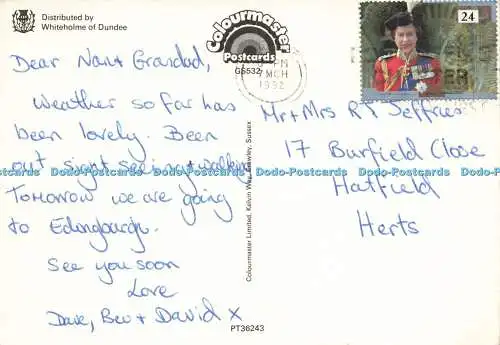 Distributed by
Whiteholme of Dundee
Colourmaster
Postcards
GS532
PM
MCH
24
Dear Nan + Grandad,
Weather so far has
been lovely. Been
out sight seeing + walking
Tomorrow we are going
to Edingburgh.
See you soon
Love
Dave, Bev + David X
Mr + Mrs R T Jeffries
17 Burfield Close
Hatfield
Herts
Colourmaster Limited, Kelvin Way, Crawley, Sussex
PT36243
Dodo-Postcards Dodo-Postcards Dodo-Postcards Dodo-Postcards Dodo-Postcards